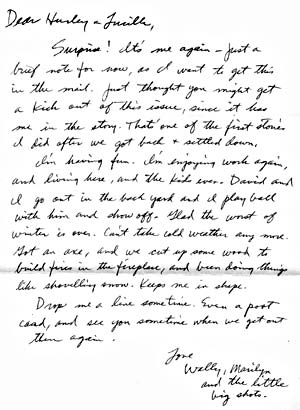 Dear Hurley & Lucille,
Surprise! It's me again - just a
brief note for now, as I want to get this
in the mail. Just thought you might get
a kick out of this issue, since it has
me in the story. That's one of the first stories
I did after we got back & settled down.
I'm having fun. I'm enjoying work again,
and living here, and the kids even. David and
I go out in the back yard and I play ball
with him and show off. Glad the worst of
winter is over. Can't take cold weather any more.
Got an axe, and we cut up some wood to
build fires in the fireplace, and been doing things
like shovelling snow. Keeps me in shape.
Drop me a line sometime. Even a post
card, and see you sometime when we get out
there again.
Love
Wally, Marilyn
and the little
big shots.